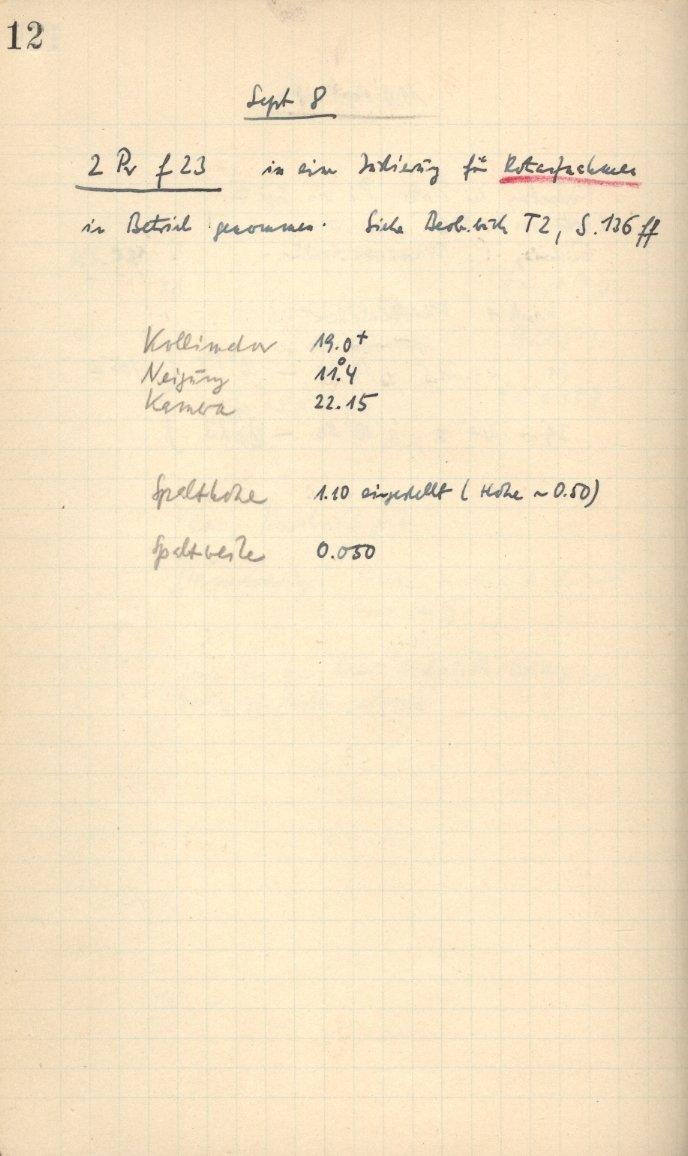 12
Sept 8
2 Pr f 23 in eine Justierung für Rotaufnahmen
in Betrieb genommen. Siehe Beob.buch T2, S. 136 ff
Kollimator 19.0+
Neigung 11°.4
Kamera 22.15
Spalthöhe 1.10 eingestellt (Höhe ~ 0.50)
Spaltweite 0.050